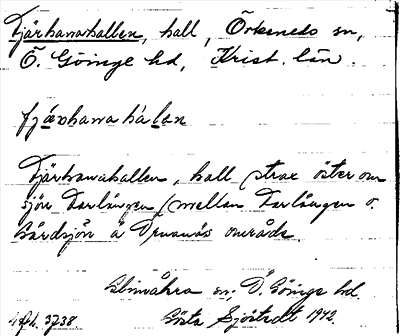 Tjärhanahallen, hall, Örkeneds sn,
Ö. Göinge hd, Krist. län.
Tjärhanahallen, hall strax öster om
sjön Tarlången (mellan Tarlången o.
Gårdsjön å Drumås område.
Glimåkra sn; Ö. Göinge hd.
3738 Gösta Sjöstedt 1942.